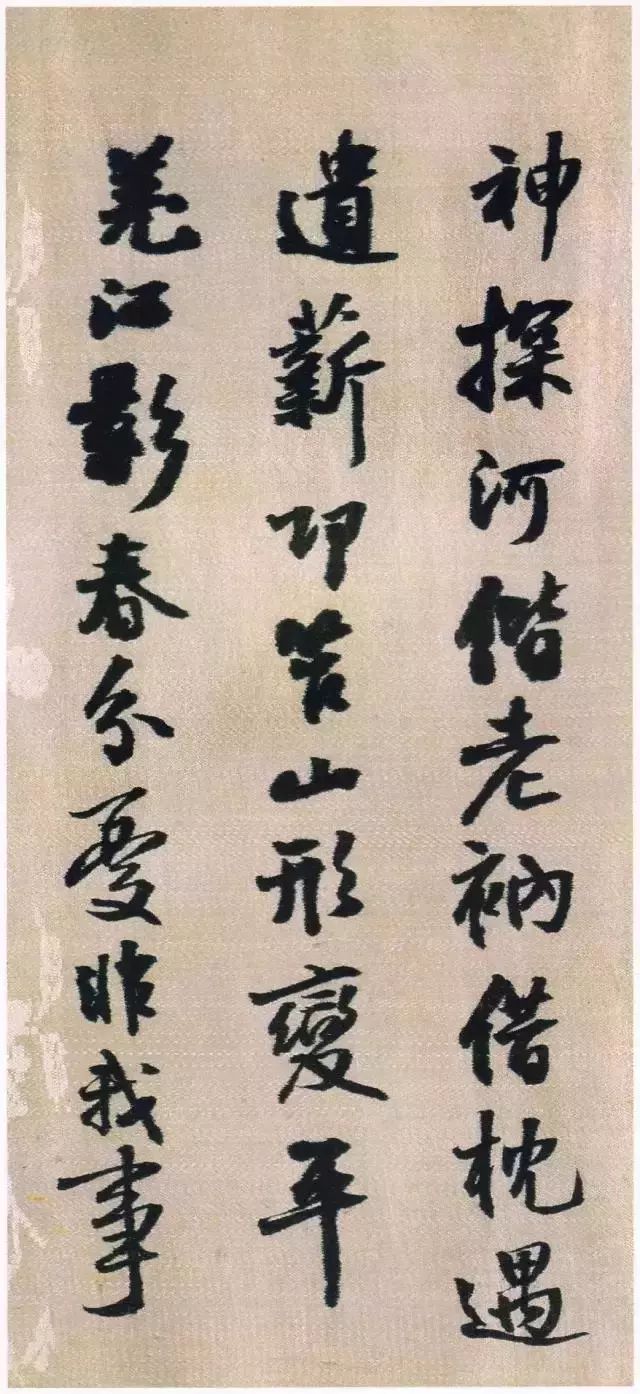 神探河偕老衲借枕遇
遺薪卭笮山形變平
羌江影春分憂非我事